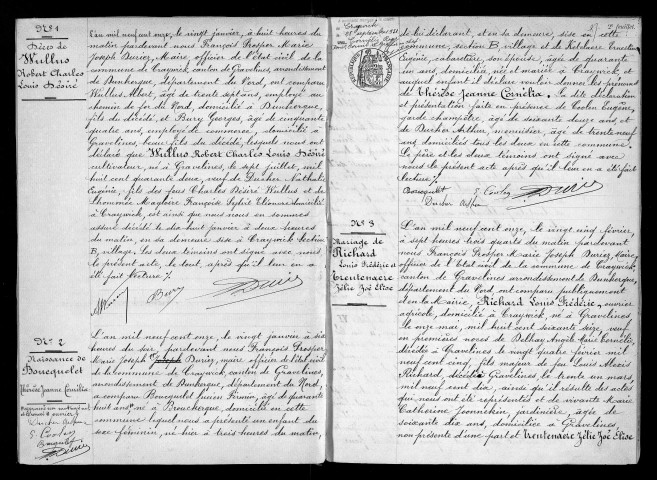 N° 1
Décès de
Wullus
Robert Charles
Louis Désiré
L'an mil neuf cent onze, le vingt janvier, à huit heures du
matin pardevant nous François Prosper Marie
Joseph Buriez, Maire, officier de l'état civil de la
commune de Craywick, canton de Gravelines, arrondissement
de Dunkerque, département du Nord, ont comparu
Wullus Albert, âgé de trente sept ans, employé au
chemin de fer du Nord, domicilié à Dunkerque,
fils du décédé, et Bury Georges, âgé de cinquante
quatre ans, employé de commerce, domicilié à
Gravelines, beau fils du décédé, lesquels nous ont
déclaré que Wullus Robert Charles Louis Désiré
cultivateur, né à Gravelines, le sept juillet, mil
huit cent quarante deux, veuf de Nathalie
Eugénie, fils des feus Charles Désiré Wullus et de
Lhommée Magloire Françoise Sylvie Eléonore, domicilié
à Craywick, est ainsi que nous nous en sommes
assuré décédé le dix huit janvier à deux heures du
matin, en sa demeure sise à Craywick Section
B, village. Les deux témoins ont signé avec nous
le présent acte, le tout, après qu'il leur en a
été fait lecture.
Bury
N° 2
Naissance de
Boucquelet
Thérèse Jeanne Cornélia
L'an mil neuf cent onze, le vingt janvier à six
heures du soir, pardevant nous François Prosper
Marie Joseph Buriez, maire officier de l'état civil
de la commune de Craywick, canton de Gravelines,
arrondissement de Dunkerque, département du Nord,
a comparu Boucquelet Lucien Firmin, âgé de quarante
huit ans, né à Brouckerque, domicilié en cette
commune lequel nous a présenté un enfant du
sexe féminin, né hier à trois heures du matin,
2e feuillet
de lui déclarant, et en sa demeure, sise en cette
commune, section B, village et de Ernestine
Eugénie, cabaretière, son épouse, âgée de quarante
un ans, domiciliée, née et mariée à Craywick, et
auquel enfant il a déclaré vouloir donner les prénoms
de Thérèse Jeanne Cornélia. La dite déclaration
et présentation faite en présence de Eugène,
garde champêtre, âgé de soixante deux ans, et
de Arthur, menuisier, âgé de trente neuf
ans, domiciliés tous les deux en cette commune.
Le père et les deux témoins ont signé avec
nous le présent acte après qu'il leur en a été fait
lecture.
Boucquelet
N° 3
Mariage de
Richard
Louis Frédéric et
Trentenaere
Zélie Zoé Elise
L'an mil neuf cent onze, le vingt cinq février,
à sept heures trois quarts du matin pardevant
nous François Prosper Marie Joseph Buriez, Maire,
officier de l'état civil de la commune de Craywick,
canton de Gravelines arrondissement de Dunkerque,
département du Nord ont comparu publiquement
et en la Mairie, Richard Louis Frédéric, ouvrier
agricole, domicilié à Craywick, né à Gravelines
le onze mai, mil huit cent soixante seize, veuf
en premières noces de Delhay Angèle Marie Cornélie,
décédée à Gravelines le vingt quatre février mil
neuf cent cinq, fils majeur de feu Louis Alexis
Richard, décédé à Gravelines le trente en mars,
mil neuf cent dix, ainsi qu'il résulte des actes
qui nous ont été représentés et de vivante Marie
Catherine Joonnekin, jardinière, âgée de
soixante dix ans, domiciliée à Gravelines,
non présente d'une part et Trentenaere Zélie Zoé Elise